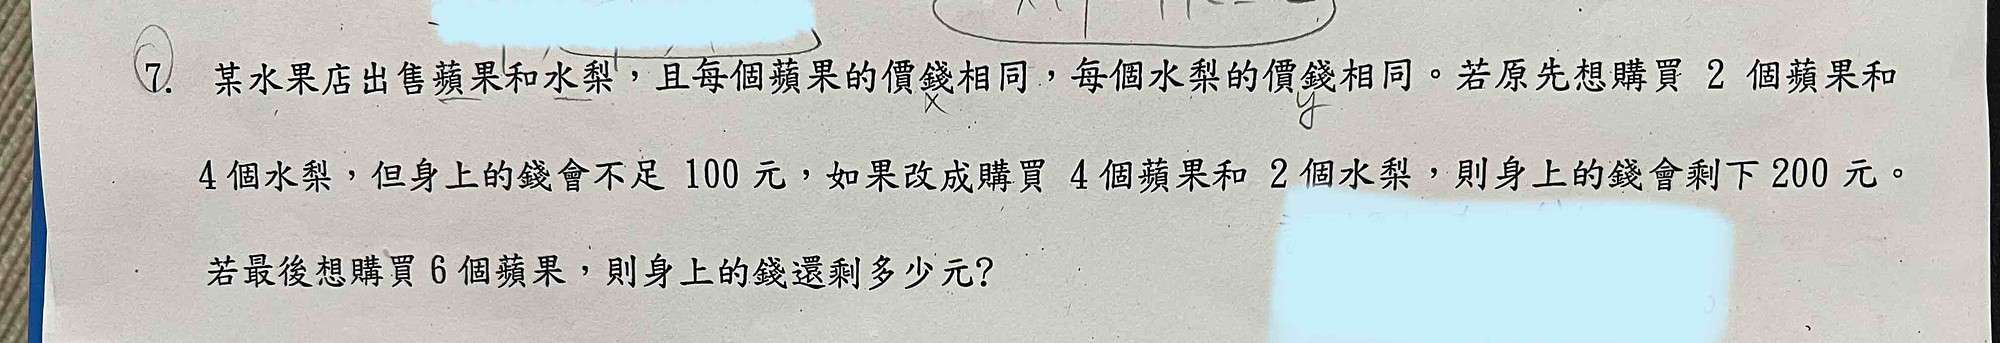 7. 某水果店出售蘋果和水梨，且每個蘋果的價錢相同，每個水梨的價錢相同。若原先想購買 2 個蘋果和
x y
4 個水梨，但身上的錢會不足 100 元，如果改成購買 4 個蘋果和 2 個水梨，則身上的錢會剩下 200 元。
若最後想購買 6 個蘋果，則身上的錢還剩多少元?